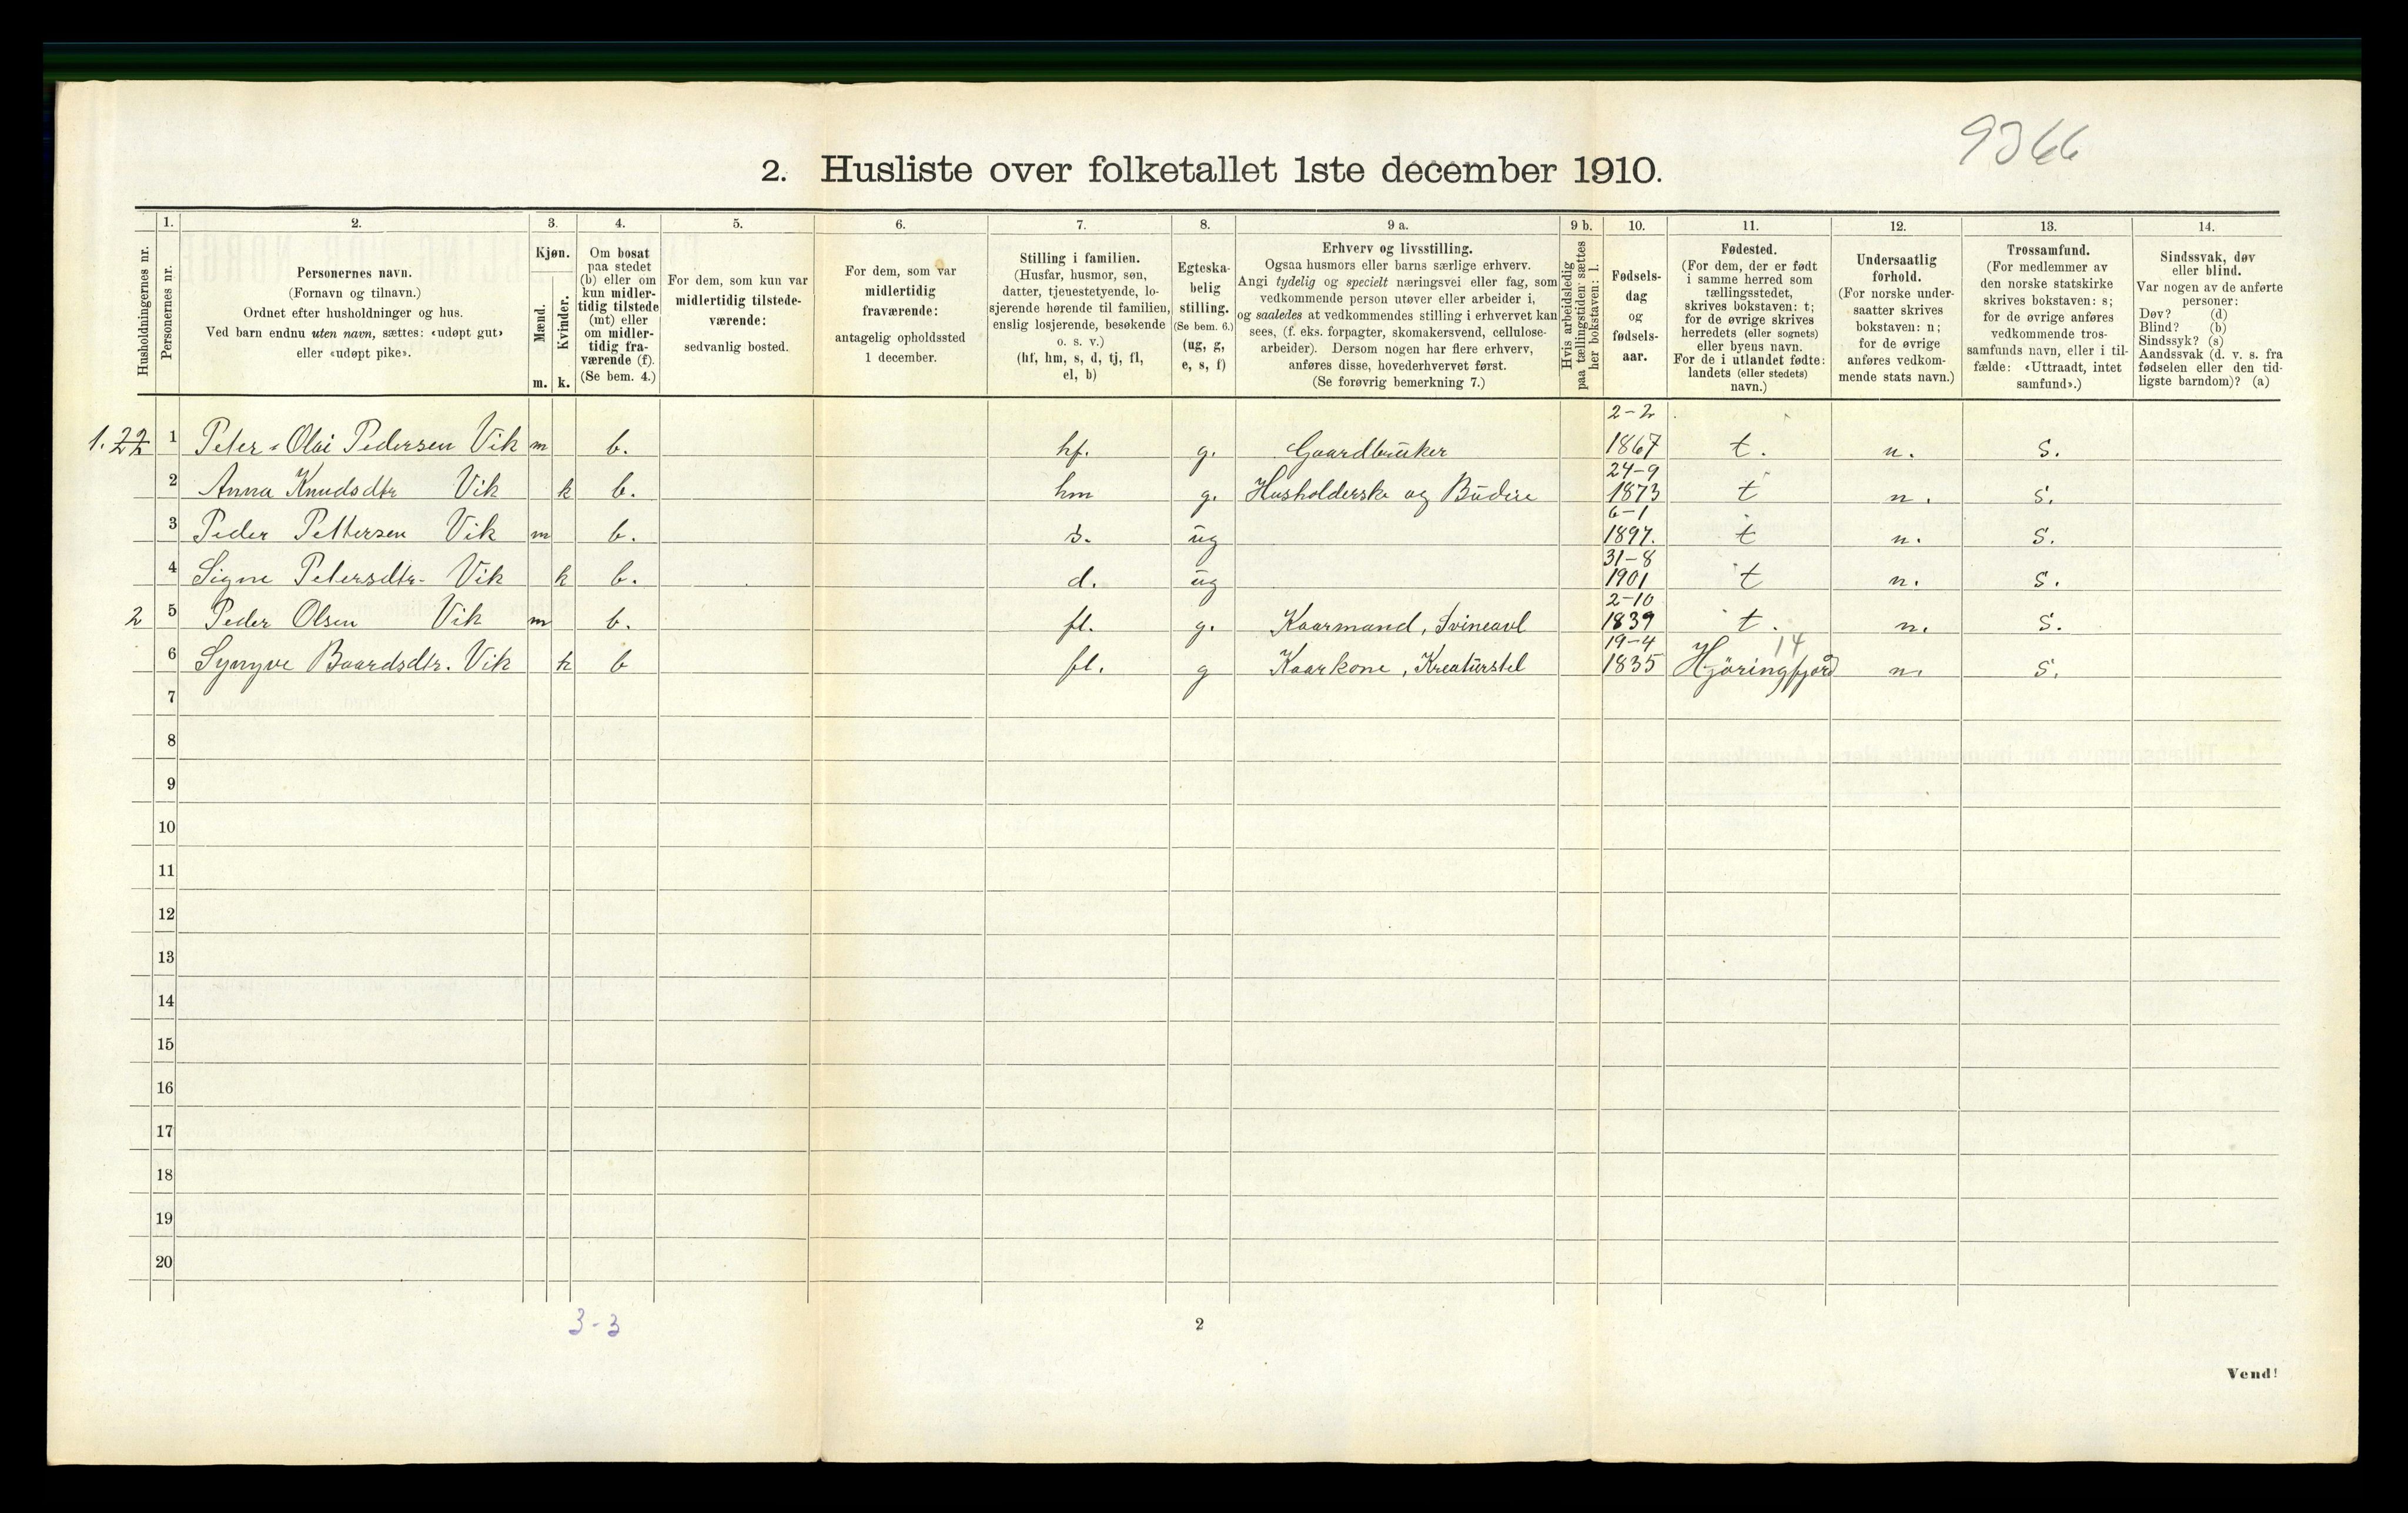 9366
2. Husliste over folketallet 1ste december 1910.
1. 2. 3. 4. 5. 6. 7. 8. 9 a. 9 b. 10. 11. 12. 13. 14.
Husholdningernes nr.
Personernes nr.
Personernes navn.
(Fornavn og tilnavn.)
Ordnet efter husholdninger og hus.
Ved barn endnu uten navn, sættes: «udøpt gut»
eller «udøpt pike».
Kjøn.
Mænd.
Kvinder.
m. k.
Om bosat
paa stedet
(b) eller om
kun midler-
tidig tilstede
(mt) eller
om midler-
tidig fra-
værende (f).
(Se bem. 4.)
For dem, som kun var
midlertidig tilstede-
værende:
sedvanlig bosted.
For dem, som var
midlertidig
fraværende:
antagelig opholdssted
1 december.
Stilling i familien.
(Husfar, husmor, søn,
datter, tjenestetyende, lo-
sjerende hørende til familien,
enslig losjerende, besøkende
o. s. v.)
(hf, hm, s, d, tj, fl,
el, b)
Egteska-
belig
stilling.
(Se bem. 6.)
(ug, g,
e, s, f)
Erhverv og livsstilling.
Ogsaa husmors eller barns særlige erhverv.
Angi tydelig og specielt næringsvei eller fag, som
vedkommende person utøver eller arbeider i,
og saaledes at vedkommendes stilling i erhvervet kan
sees, (f. eks. forpagter, skomakersvend, cellulose-
arbeider). Dersom nogen har flere erhverv,
anføres disse, hovederhvervet først.
(Se forøvrig bemerkning 7.)
Hvis arbeidsledig
paa tællingstiden sættes
her bokstaven: l.
Fødsels-
dag
og
fødsels-
aar.
Fødested.
(For dem, der er født
i samme herred som
tællingsstedet,
skrives bokstaven: t;
for de øvrige skrives
herredets (eller sognets)
eller byens navn.
For de i utlandet fødte:
landets (eller stedets)
navn.)
Undersaatlig
forhold.
(For norske under-
saatter skrives
bokstaven: n;
for de øvrige
anføres vedkom-
mende stats navn.)
Trossamfund.
(For medlemmer av
den norske statskirke
skrives bokstaven: s;
for de øvrige anføres
vedkommende tros-
samfunds navn, eller i til-
fælde: «Uttraadt, intet
samfund».)
Sindssvak, døv
eller blind.
Var nogen av de anførte
personer:
Døv? (d)
Blind? (b)
Sindssyk? (s)
Aandssvak (d. v. s. fra
fødselen eller den tid-
ligste barndom)? (a)
1. 22 1 Peter-Olai Pedersen Vik m b. hf. g. Gaardbruker 2-2 1867 t. n. s.
2 Anna Knudsdtr Vik k b. hm g. Husholderske og Budeie 24-9 1873 t n. s.
3 Peder Pettersen Vik m b. s. ug 6-1 1897. t n. s.
4 Signe Petersdtr. Vik k b. d. ug 31-8 1901 t n. s.
2 5 Peder Olsen Vik m b. fl. g. Kaarmand, Svineavl 2-10 1839 t. n. s.
6 Synyve Baardsdtr. Vik k b fl. g Kaarkone, Kreaturstel 19-4 1835 Hjöringfjord 14 n. s.
7
8
9
10
11
12
13
14
15
16
17
18
19
20
3-3
2
Vend!